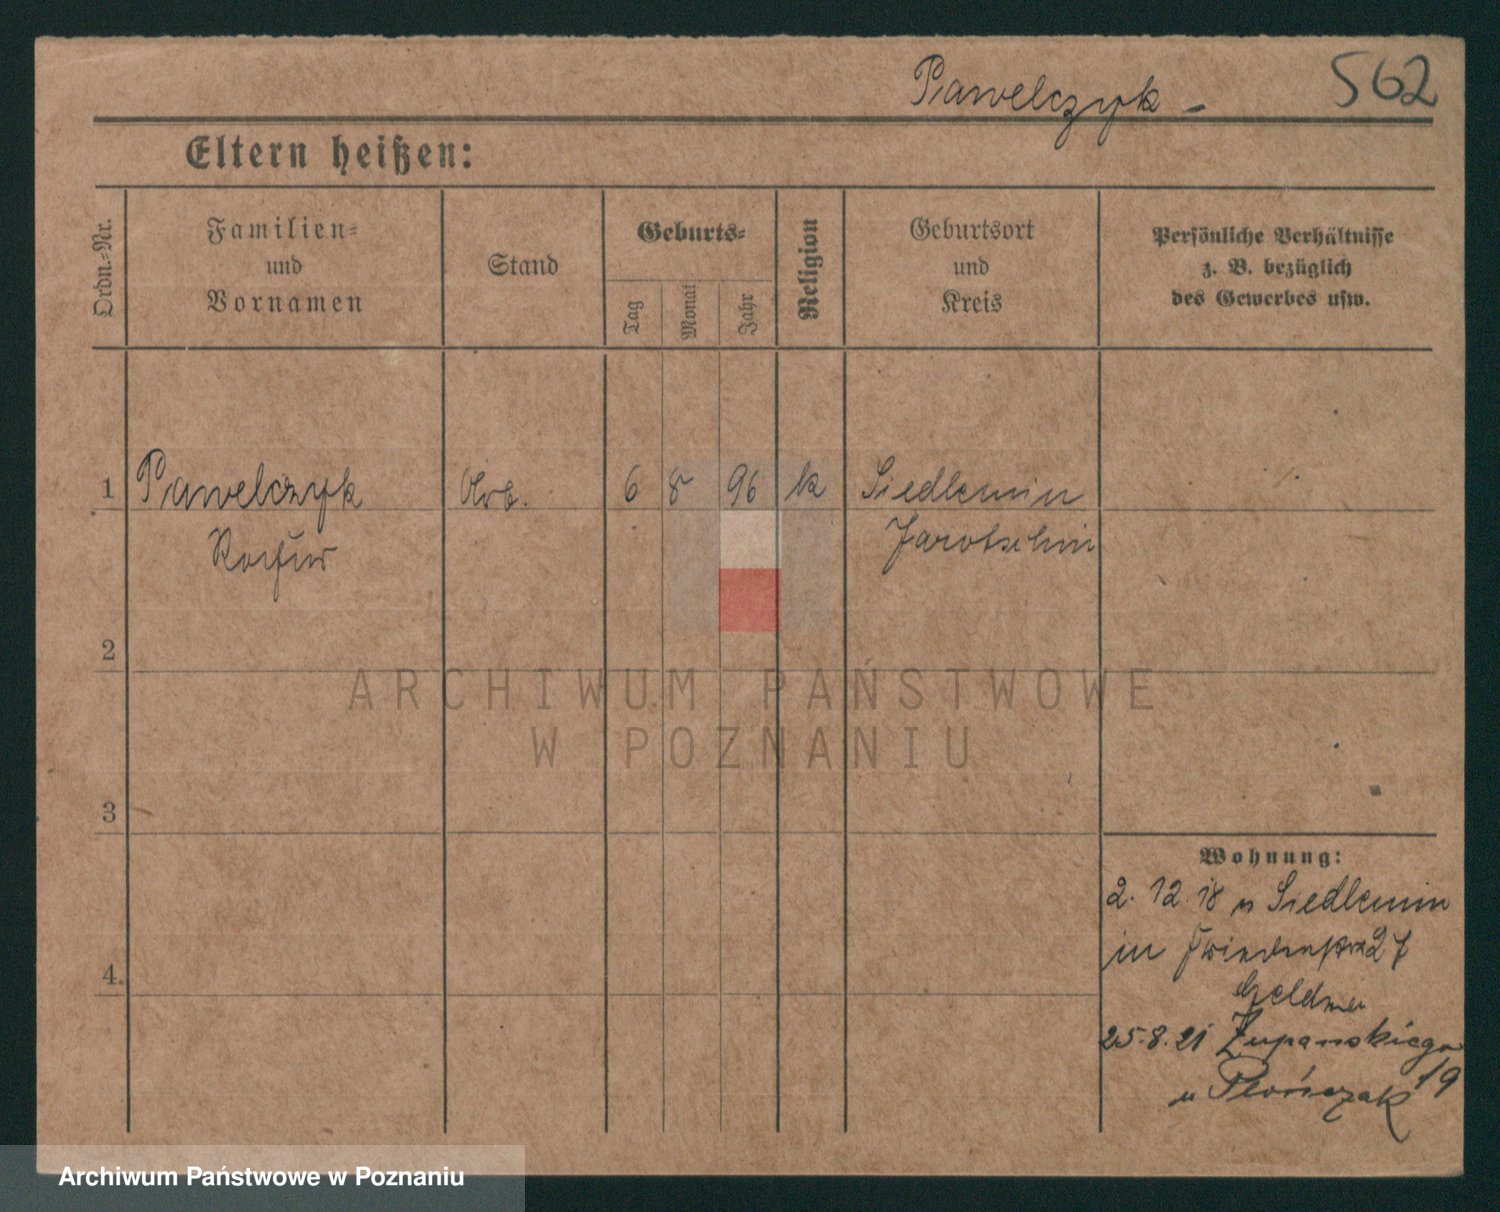 Pawelczyk - 562
Eltern heißen:
Ordn.-Nr.
Familien-
und
Vornamen
Stand
Geburts-
Tag
Monat
Jahr
Religion
Geburtsort
und
Kreis
Persönliche Verhältnisse
z. B. bezüglich
des Gewerbes usw.
1 Pawelczyk Arb. 6 8 96 k Siedlemin
Jarotschin
2
3
4.
ARCHIWUM PAŃSTWOWE
W POZNANIU
Wohnung:
2. 12. 18 v Siedlemin
in 27
25.8.21 Żupańskiego
19
u Płończak
Archiwum Państwowe w Poznaniu